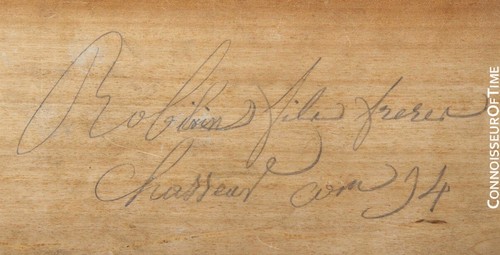 Robinin fils freres
Chasseur com 94
CONNOISSEUROFTIME